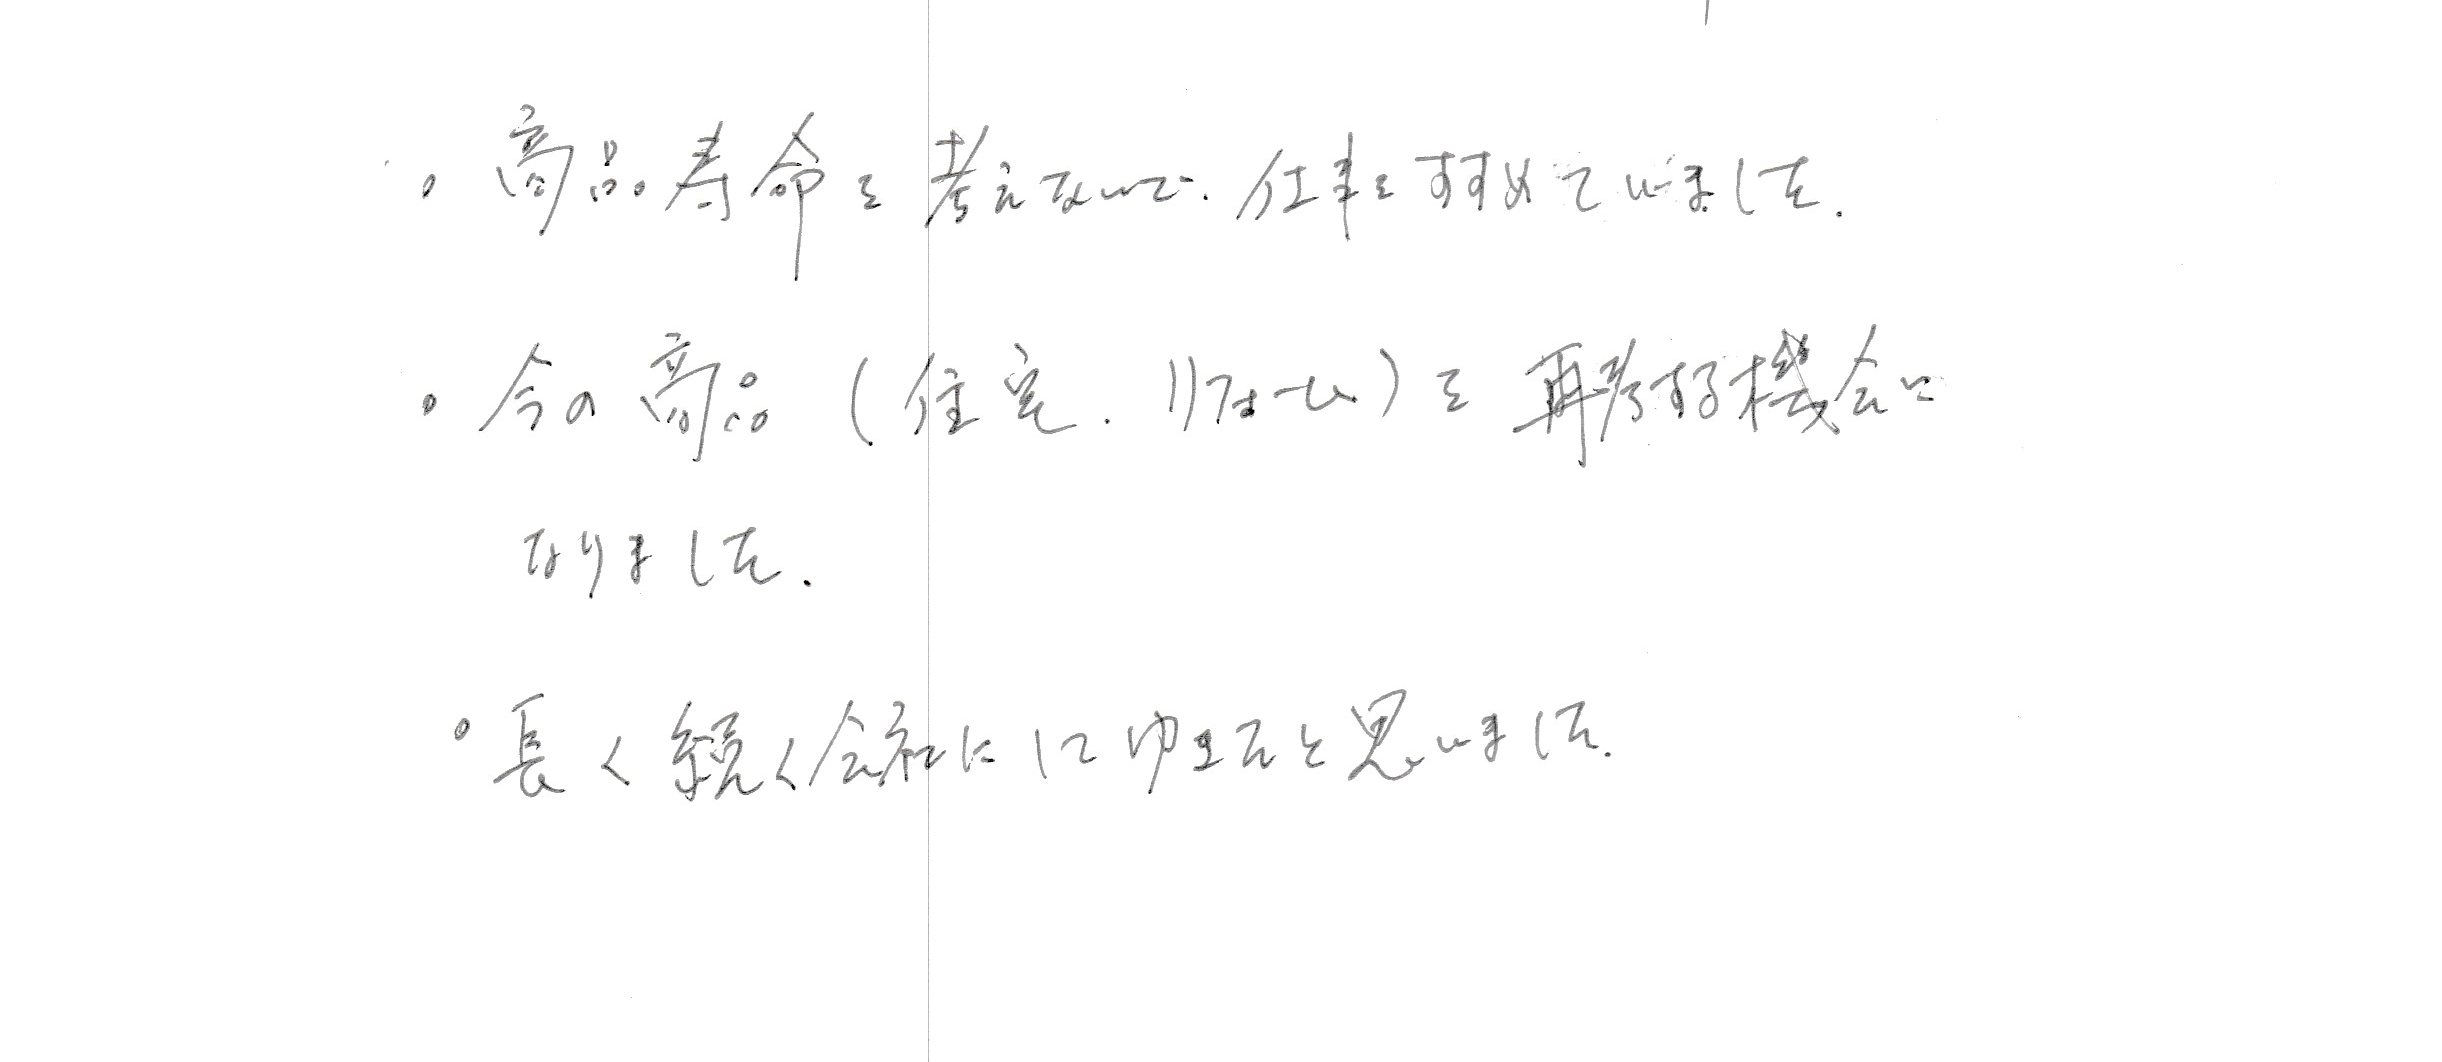 ・商品寿命を考えないで、仕事をすすめていました。
・今の商品(住宅、リフォーム)を再考する機会に
なりました。
・長く続く会社にしてゆきたいと思いました。